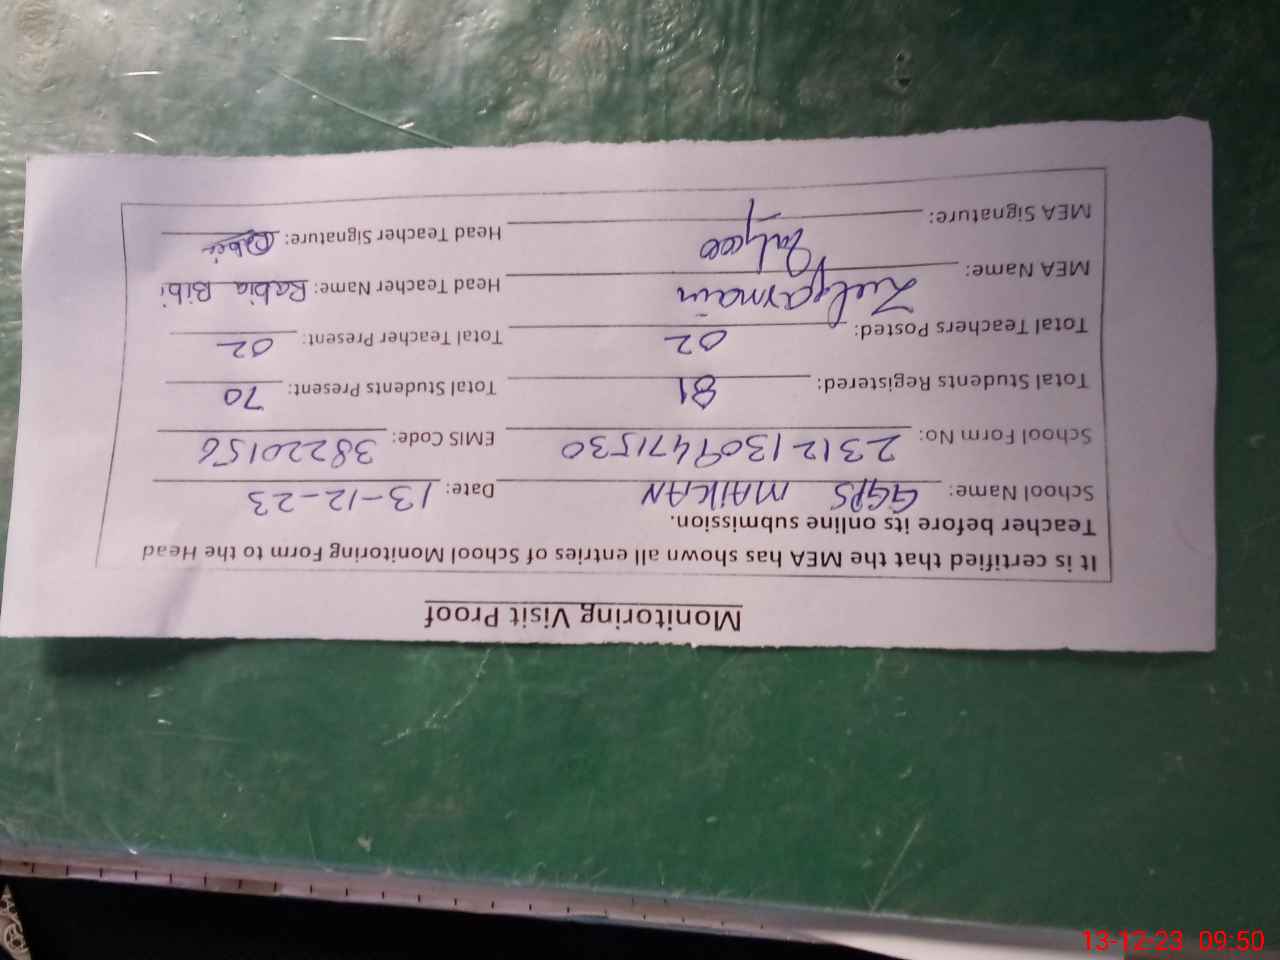 Monitoring Visit Proof
It is certified that the MEA has shown all entries of School Monitoring Form to the Head
Teacher before its online submission.
School Name: GGPS MAIKAN Date: 13-12-23
School Form No: 23121309471530 EMIS Code: 38220156
Total Students Registered: 81 Total Students Present: 70
Total Teachers Posted: 02 Total Teacher Present: 02
MEA Name: Zulqarnain Head Teacher Name: Rabia Bibi
MEA Signature: Head Teacher Signature:
13-12-23 09:50